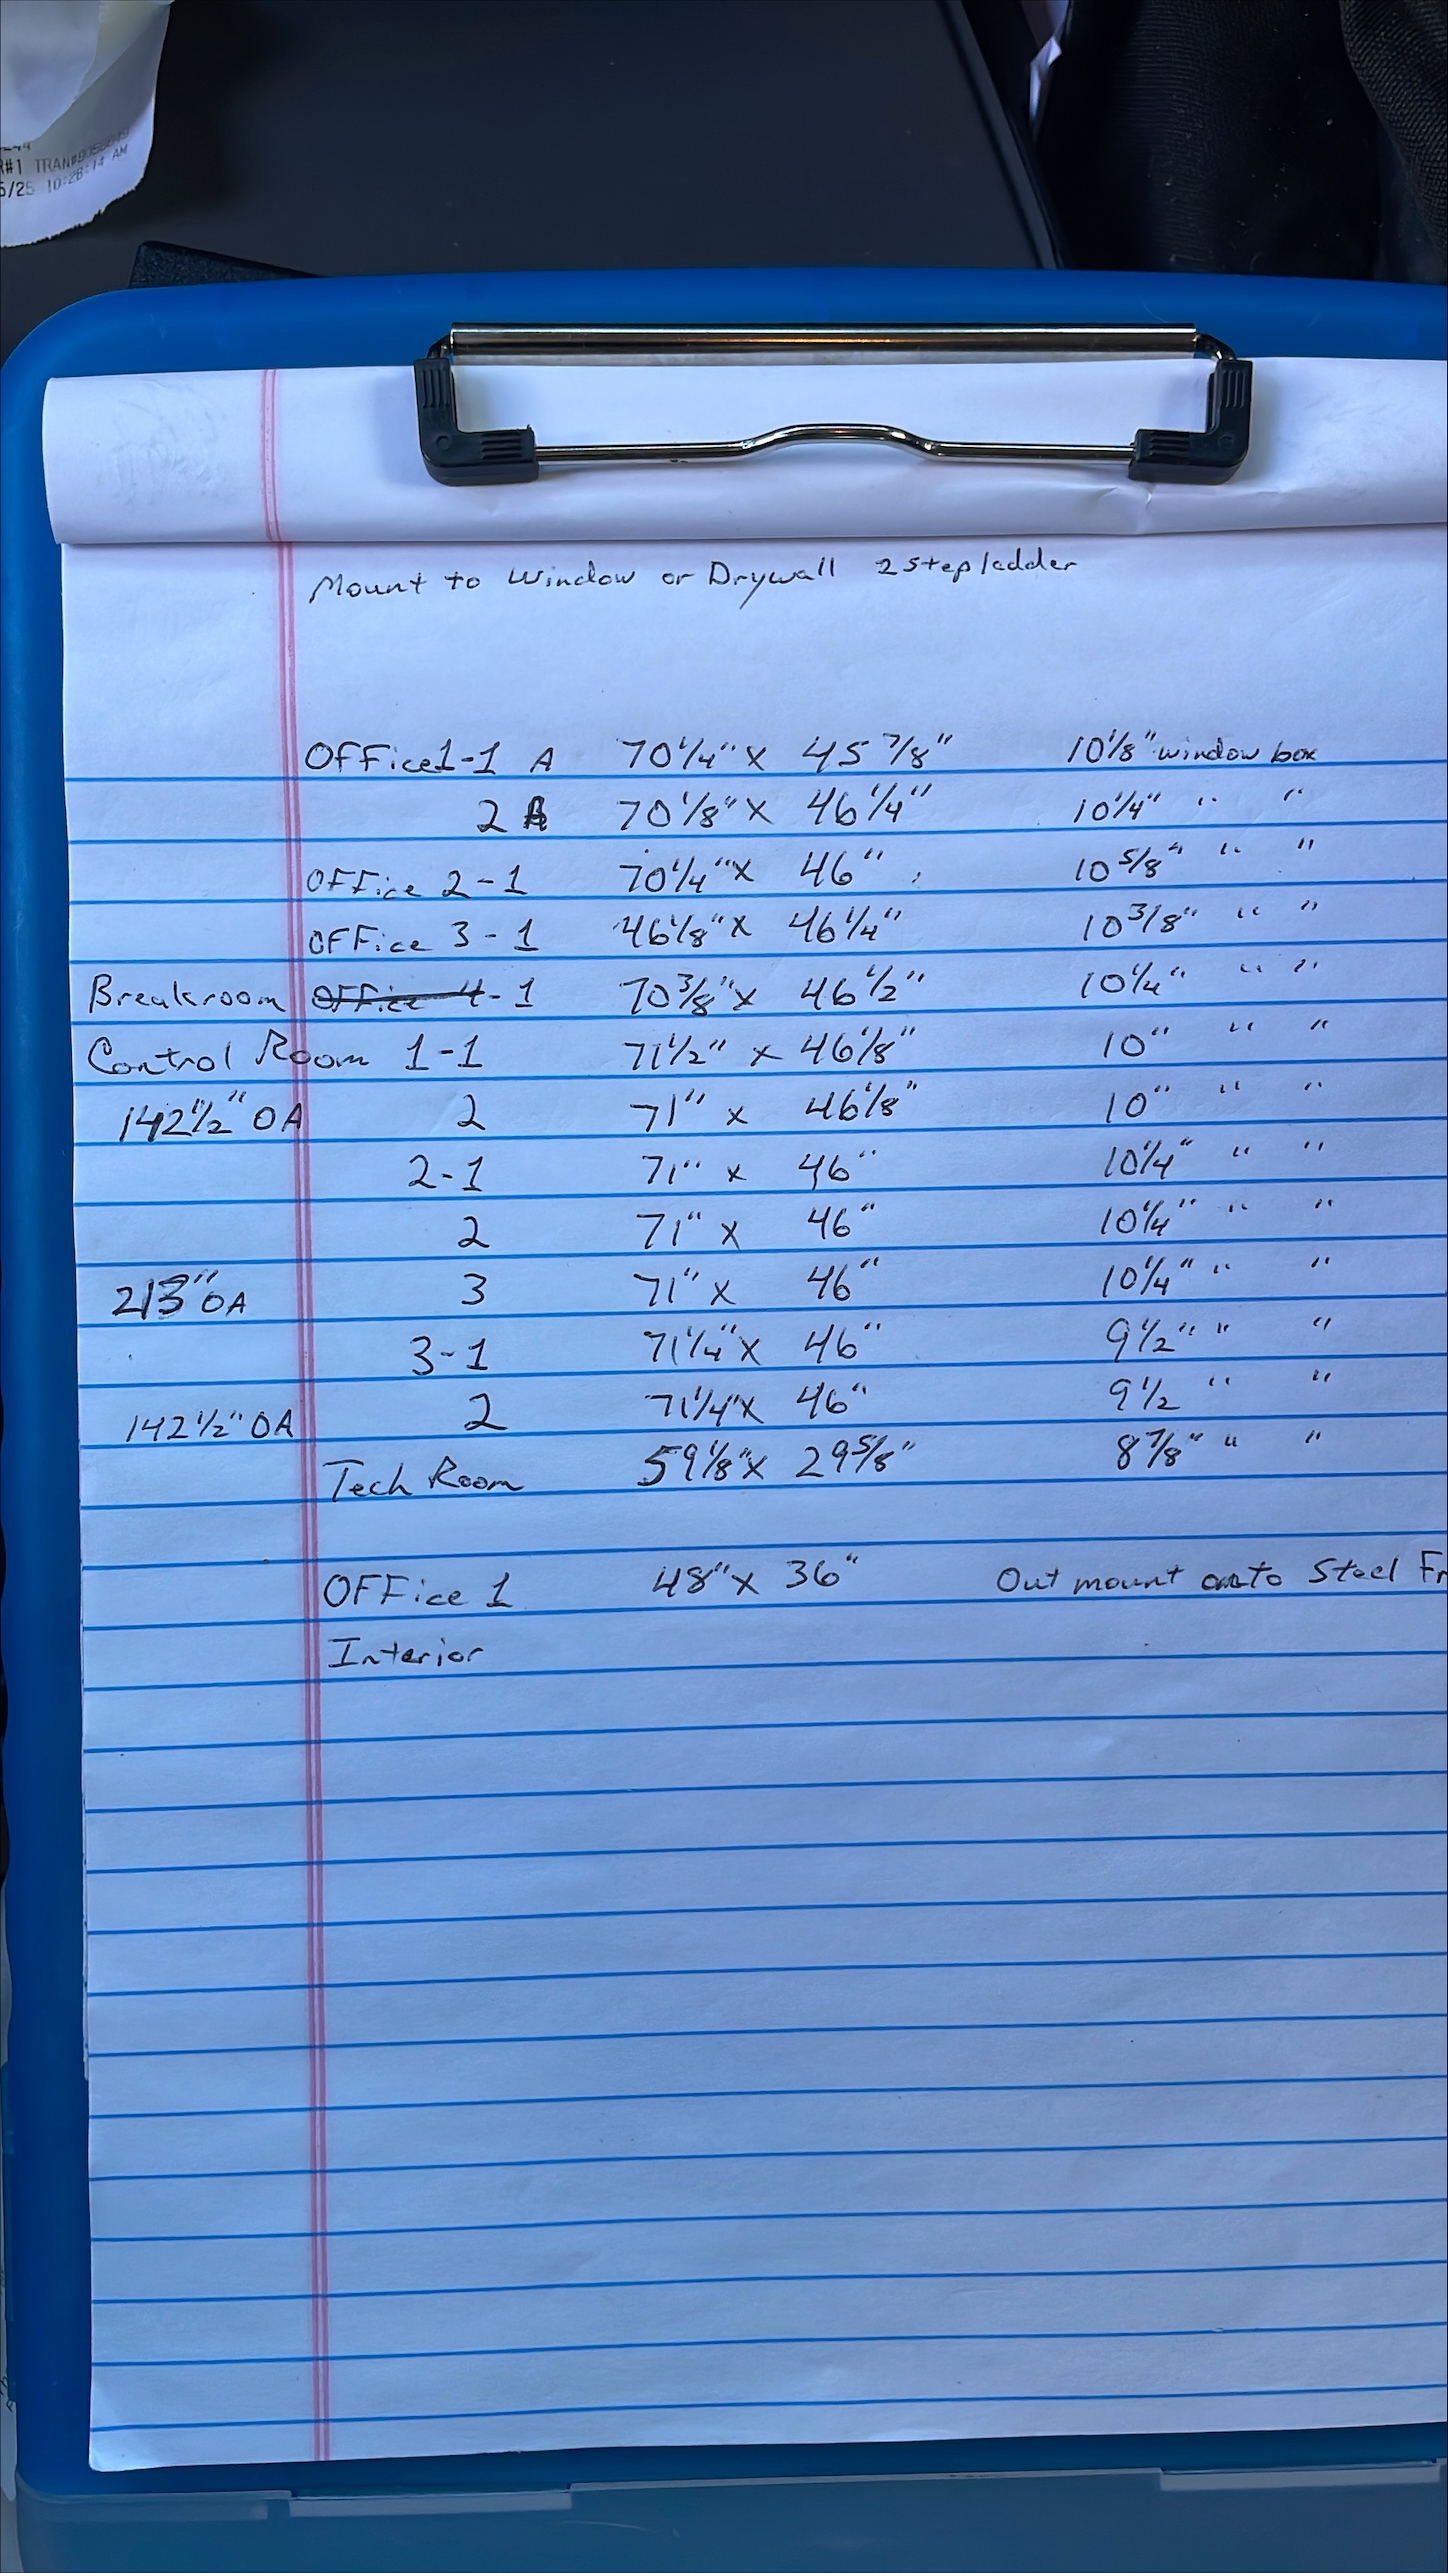 R#1 TRAN#
5/25 10:28:14 AM
Mount to Window or Drywall 2 Stepladder
Office1-1 A 70 1/4" X 45 7/8" 10 1/8" window box
2 A 70 1/8" X 46 1/4" 10 1/4" " "
Office 2-1 70 1/4" X 46" 10 5/8" " "
Office 3-1 46 1/8" X 46 1/4" 10 3/8" " "
Breakroom Office 4-1 70 3/8" X 46 1/2" 10 1/4" " "
Control Room 1-1 71 1/2" x 46 1/8" 10" " "
142 1/2" OA 2 71" x 46 1/8" 10" " "
2-1 71" x 46" 10 1/4" " "
2 71" X 46" 10 1/4" " "
213" OA 3 71" X 46" 10 1/4" " "
3-1 71 1/4" X 46" 9 1/2" " "
142 1/2" OA 2 71 1/4" X 46" 9 1/2 " "
Tech Room 59 1/8" X 29 5/8" 8 7/8" " "
Office 1 48" X 36" Out mount onto Steel Fr
Interior